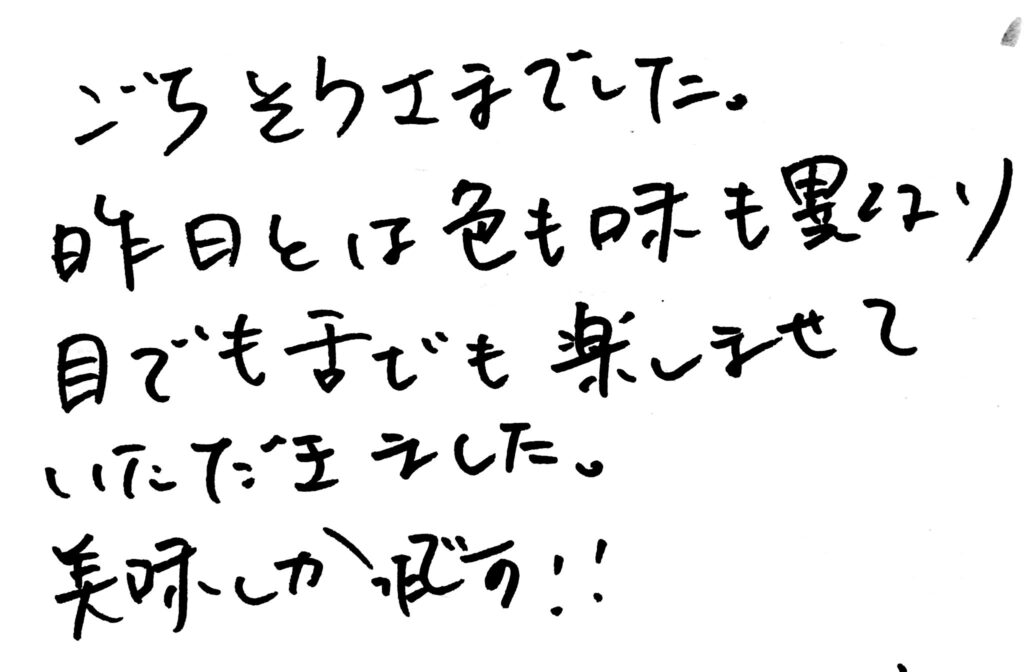 ごちそうさまでした。
昨日とは色も味も異なり
目でも舌でも楽しませて
いただきました。
美味しかったです!!